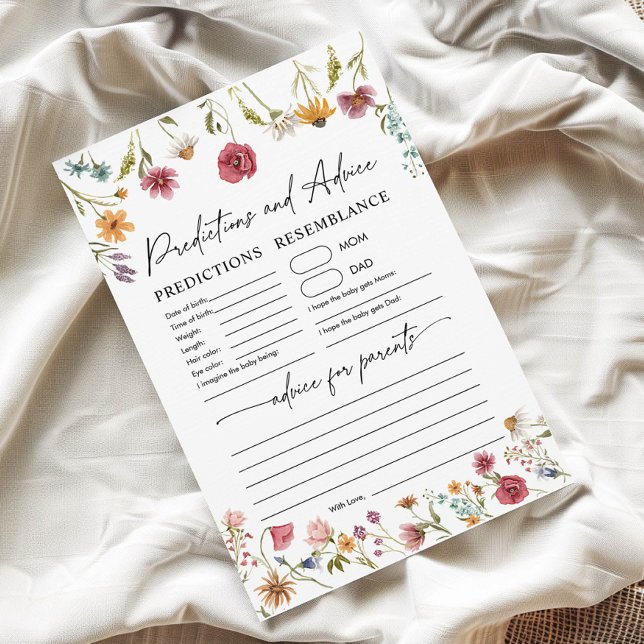 Predictions and Advice
PREDICTIONS
Date of birth:
Time of birth:
Weight:
Length:
Hair color:
Eye color:
I imagine the baby being:
RESEMBLANCE
MOM
DAD
I hope the baby gets Moms:
I hope the baby gets Dad:
advice for parents
With Love,